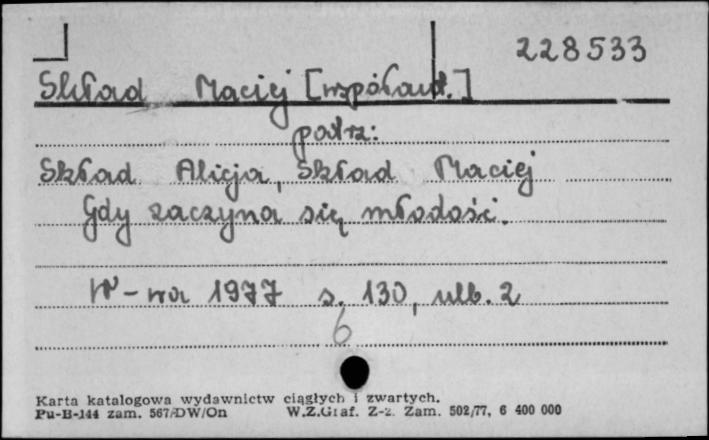 228533
Skład Maciej [współaut.]
patrz:
Skład Alicja, Skład Maciej
Gdy zaczyna się młodość.
W-wa 1977 s. 130, nlb. 2
6
Karta katalogowa wydawnictw ciągłych i zwartych.
Pu-B-144 zam. 567/DW/On W.Z.Graf. Z-z. Zam. 502/77, 6 400 000